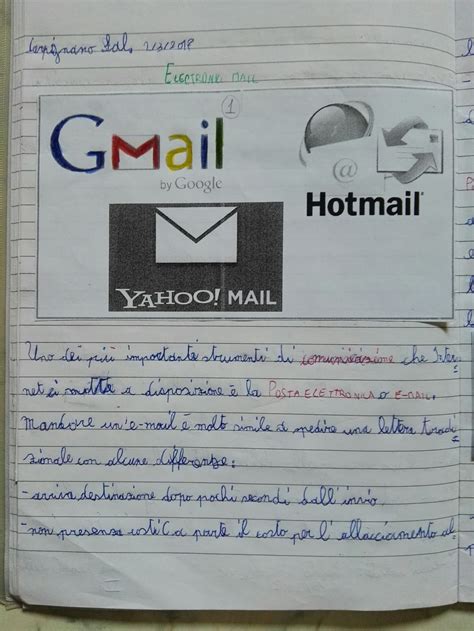 Carpignano Sal. 2/3/2018
ELECTRONIC MAIL
1
Gmail
by Google
@
Hotmail
YAHOO! MAIL
Uno dei più importante strumenti di comunicazione che Inter-
net ci mette a disposizione è la POSTA ELETTRONICA o E-MAIL.
Mandare un'e-mail è molto simile a spedire una lettera tradi-
zionale con alcune differenze:
-arriva destinazione dopo pochi secondi dall'invio
-non presenza costi (a parte il costo per l'allacciamento al-